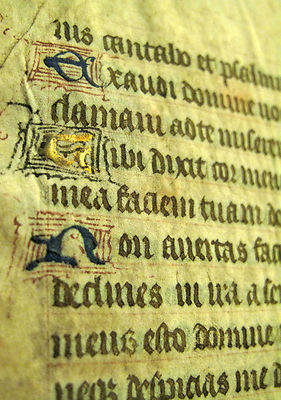 nis cantabo et psalmu
Exaudi domine uo
clamaui ad te misere
Tibi dixit cor meu
mea faciem tuam do
Non auertas faci
declines in ira a ser
meus esto domine
neqꝫ despicias me d